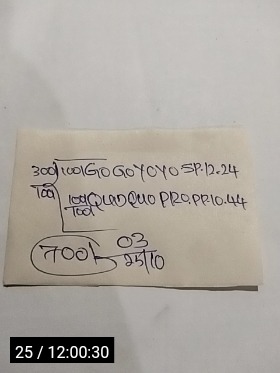 300/100/GOGOYOYOSP.12.24
100
100/QUDQUOPRO.PR10.44
100
700/- 03
25/10
25 / 12:00:30